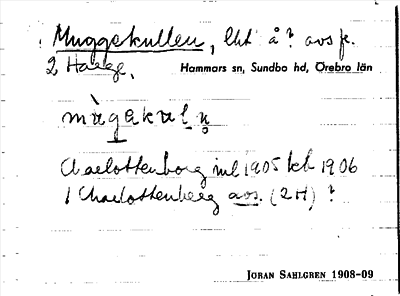 Muggekullen, lht å? avs fr.
2 Hagge,
Hammars sn, Sundbo hd, Örebro län
màgakulņ
Charlottenborg jnl 1905 kth 1906
1 Charlottenberg avs. (2H) ?
JORAN SAHLGREN 1908-09